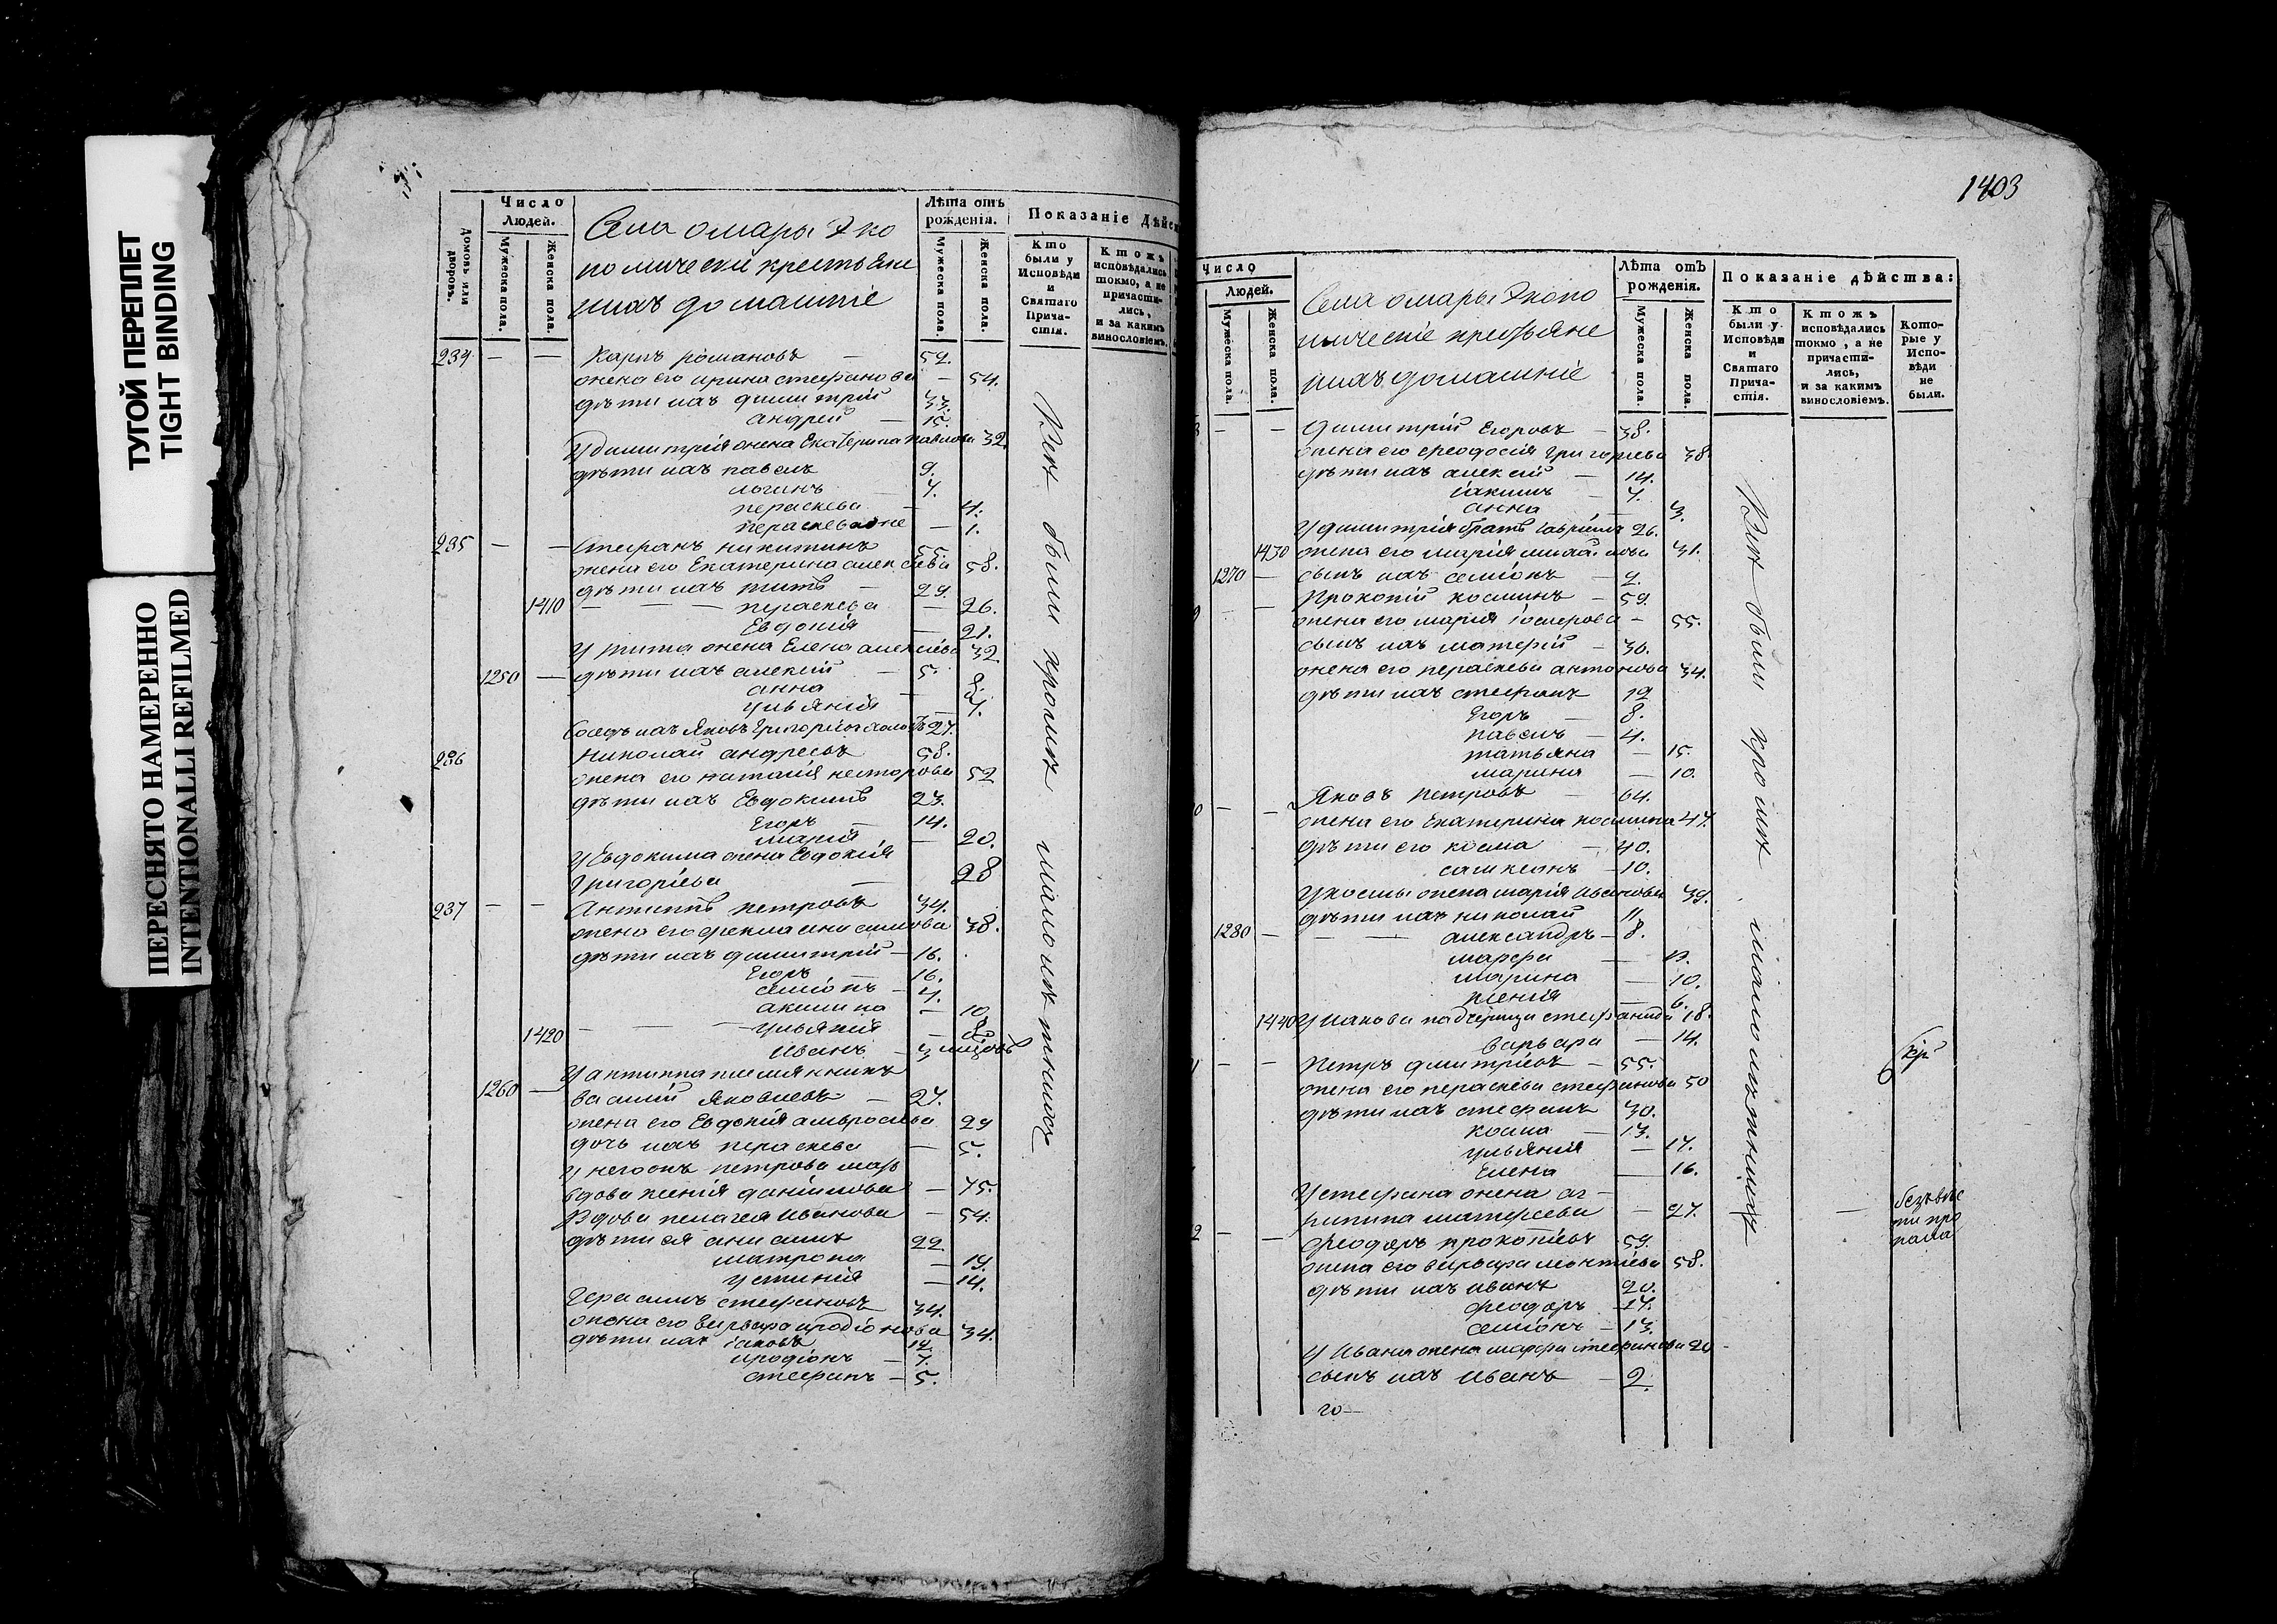 ТУГОЙ ПЕРЕПЛЕТ
TIGHT BINDING
ПЕРЕСНЯТО НАМЕРЕННО
INTENTIONALLI REFILMED
Домовъ или дворовъ.
Число Людей.
Мужеска пола.
Женска пола.
Села омары Эко
номическіе крестьяне
ихъ домашніе
Лѣта отъ рожденія.
Мужеска пола.
Женска пола.
Показаніе Дѣйс
Кто были у Исповѣди и Святаго Прича-стія.
Ктожъ исповѣдались токмо, а не причасти-лись, и за какимъ винословіемъ.
234 — — Карпъ романовъ — 52.
жена его ирина стефанова — 54.
дѣти ихъ димитрій 33.
андрей — 15.
У димитрія жена Екатерина павлова 32
дѣти ихъ павелъ 9.
логинъ — 7.
пераскева — 4.
пераскева — 1.
235 — — Стефанъ никитинъ 55.
жена его Екатерина алексѣева 58.
дѣти ихъ титъ — 29.
1410 — — — пераскева — 26.
Евдокія — 21.
У тита жена Елена алексіева 32
1250 — дѣти ихъ алексій — 5.
анна — 8.
ульянія — 4.
Соседъ ихъ Яковъ Григорьевъ 27.
236 Николай андреевъ 58.
жена его наталія несторова 52
дѣти ихъ Евдокимъ 23.
Егоръ — 14.
марія — 20.
У Евдокима жена Евдокія
Григоріева — 28
237 — — Антипъ петровъ 34.
жена его фекла анисимова 38.
дѣти ихъ димитрій — 16.
Егоръ — 16.
семіонъ — 4.
акилина — 10
1420 — — — ульянія —
Иванъ — 3 мѣсяцовъ
У антипа племянникъ
1260 — василій Яковлевъ — 27.
жена его Евдокія амвросіева 29
дочь ихъ пераскева — 5.
У него жъ петрова мать
вдова ксенія даніилова — 75.
Вдова пелагея Иванова — 54.
дѣти ея анисимъ 22
матрона — 19.
устинія — 14.
Герасимъ стефановъ 34.
жена его варвара иродіонова 34.
дѣти ихъ іаковъ 12.
иродіонъ — 7.
стефанъ — 5.
Всѣ были кромѣ малолѣтнихъ
1403
Число Людей.
Мужеска пола.
Женска пола.
Села омары Эконо
мическіе крестьяне
ихъ домашніе
Лѣта отъ рожденія.
Мужеска пола.
Женска пола.
Показаніе дѣйства:
Кто были у Исповѣди и Святаго Прича-стія.
Ктожъ исповѣдались токмо, а не причасти-лись, и за какимъ винословіемъ.
Кото-рые у Испо-вѣди не были.
— — Димитрій Егоровъ — 38.
жена его феодосія Григоріева 38.
дѣти ихъ алексій — 14.
іакимъ — 7.
анна — 3.
У димитрія братъ гавріилъ 26.
1430 жена его марія 31.
1270 — сынъ ихъ семіонъ — 2.
— — Прокопій косминъ — 59.
жена его марія — 55.
сынъ ихъ матфей — 30.
жена его пераскева антонова 34.
дѣти ихъ стефанъ 12
Егоръ — 8.
павелъ — 4.
татьяна — 15.
марина — 10.
— — Яковъ петровъ — 64.
жена его Екатерина космина 47.
дѣти его косма — 40.
10.
У космы жена марія Иванова 39.
дѣти ихъ николай 11
1280 — — — александръ — 8.
марфа —
марина — 10.
ксенія — 6.
1440 У іакова падчерицы стефанида 18.
варвара — 14.
— — Петръ димитріевъ — 55.
жена его пераскева стефанова 50
дѣти ихъ стефанъ 30.
косма — 13.
ульянія — 17.
Елена — 16.
У стефана жена аг-
рипина матфеева — 27.
безъ вѣс
ти про
пала
— — Феодоръ прокопіевъ 59.
жена его варвара 58.
дѣти ихъ иванъ 20.
феодоръ 17.
семіонъ — 13.
У Ивана жена марфа стефанова 20
сынъ ихъ Иванъ — 2.
го—
Всѣ были кромѣ малолѣтнихъ